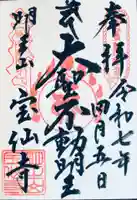 奉拝
令和七年四月五日
大聖不動明王
明王山宝仙寺